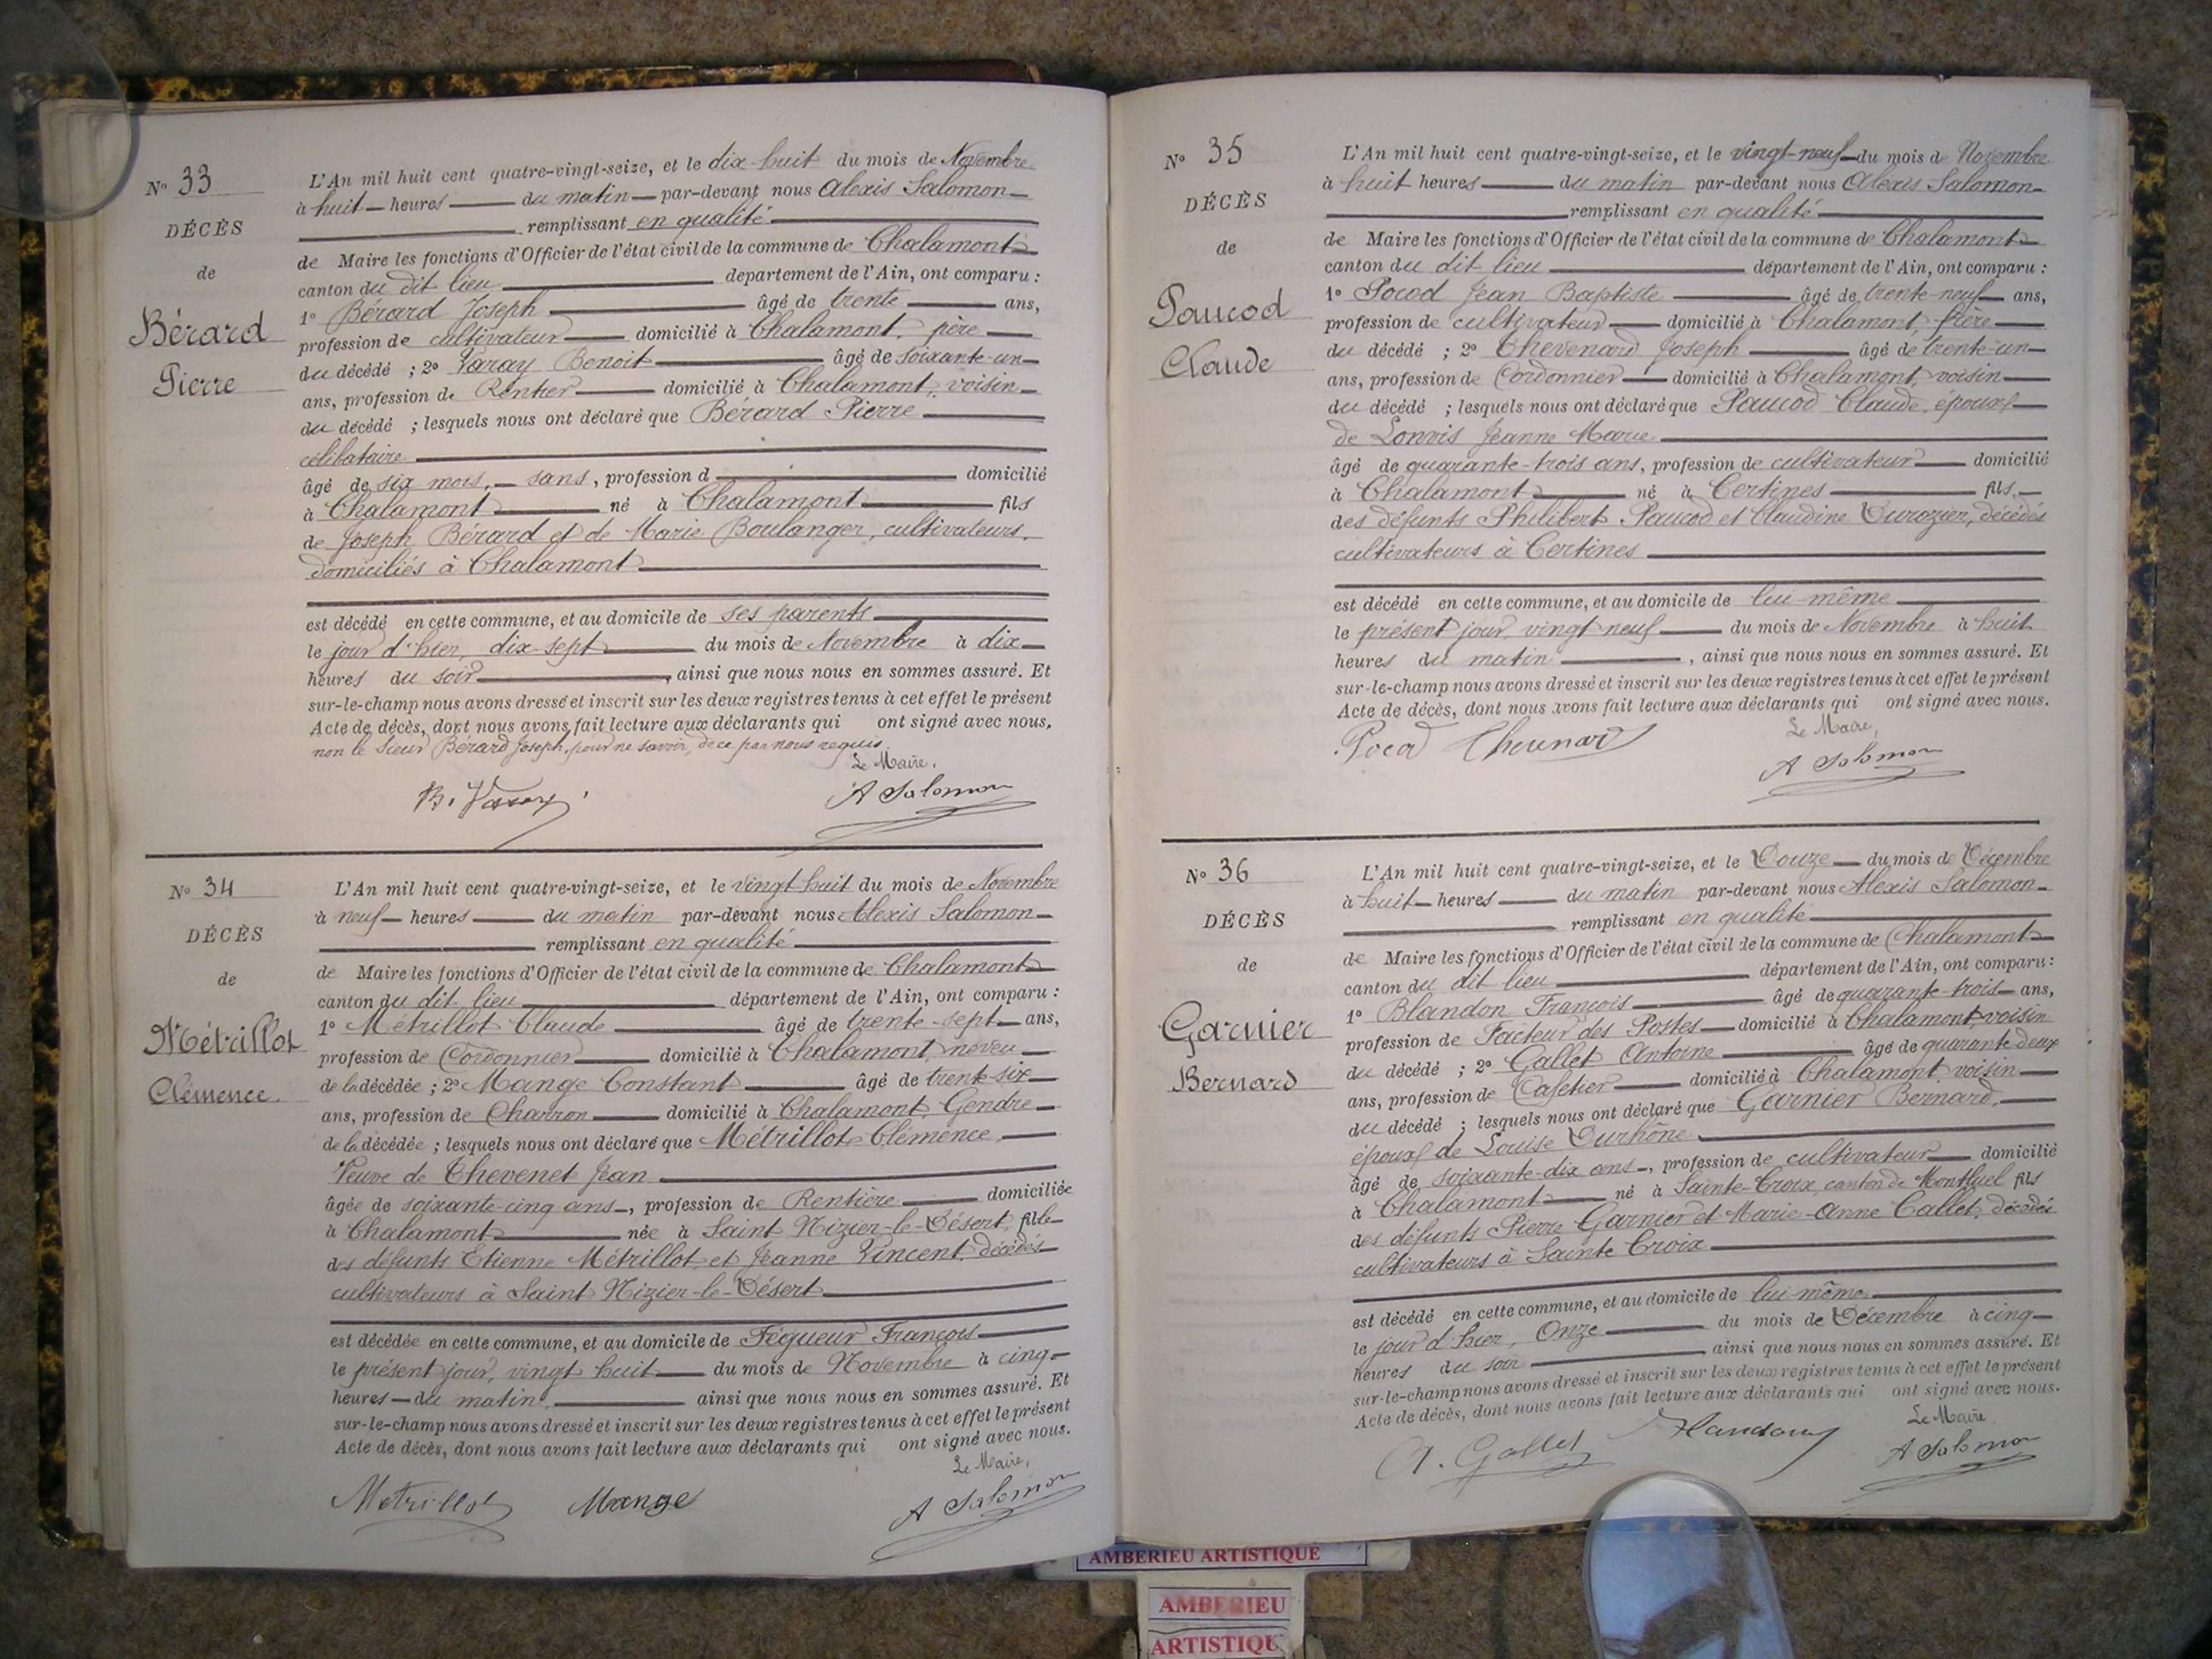 N° 33
DÉCÈS
de
Bérard
Pierre
L'An mil huit cent quatre-vingt-seize, et le dix-huit du mois de Novembre
à huit heures du matin par-devant nous Alexis Salomon
remplissant en qualité
de Maire les fonctions d'Officier de l'état civil de la commune de Chalamont
canton du dit lieu département de l'Ain, ont comparu :
1° Bérard Joseph âgé de trente ans,
profession de cultivateur domicilié à Chalamont, père
du décédé ; 2° Varay Benoit âgé de soixante-un
ans, profession de Rentier domicilié à Chalamont, voisin
du décédé ; lesquels nous ont déclaré que Bérard Pierre
célibataire
âgé de six mois, sans, profession d domicilié
à Chalamont né à Chalamont fils
de Joseph Bérard et de Marie Boulanger, cultivateurs,
domiciliés à Chalamont
est décédé en cette commune, et au domicile de ses parents
le jour d'hier, dix-sept du mois de Novembre à dix
heures du soir, ainsi que nous nous en sommes assuré. Et
sur-le-champ nous avons dressé et inscrit sur les deux registres tenus à cet effet le présent
Acte de décès, dont nous avons fait lecture aux déclarants qui ont signé avec nous,
non le sieur Bérard Joseph, pour ne savoir, de ce par nous requis
Le Maire,
B. Varay A Salomon
N° 34
DÉCÈS
de
Métrillot
Clémence.
L'An mil huit cent quatre-vingt-seize, et le vingt huit du mois de Novembre
à neuf heures du matin par-devant nous Alexis Salomon
remplissant en qualité
de Maire les fonctions d'Officier de l'état civil de la commune de Chalamont
canton du dit lieu département de l'Ain, ont comparu :
1° Métrillot Claude âgé de trente-sept ans,
profession de Cordonnier domicilié à Chalamont, neveu
de la décédée ; 2° Mange Constant âgé de trente-six
ans, profession de Charron domicilié à Chalamont Gendre
de la décédée ; lesquels nous ont déclaré que Métrillot Clémence,
Veuve de Thevenet Jean
âgée de soixante-cinq ans, profession de Rentière domiciliée
à Chalamont née à Saint Nizier-le-Désert, fille
des défunts Etienne Métrillot et Jeanne Vincent, décédés
cultivateurs à Saint Nizier-le-Désert
est décédée en cette commune, et au domicile de Fégueur François
le présent jour, vingt huit du mois de Novembre à cinq
heures du matin, ainsi que nous nous en sommes assuré. Et
sur-le-champ nous avons dressé et inscrit sur les deux registres tenus à cet effet le présent
Acte de décès, dont nous avons fait lecture aux déclarants qui ont signé avec nous.
Le Maire,
Metrillot Mange A Salomon
N° 35
DÉCÈS
de
Paucod
Claude
L'An mil huit cent quatre-vingt-seize, et le vingt-neuf du mois de Novembre
à huit heures du matin par-devant nous Alexis Salomon
remplissant en qualité
de Maire les fonctions d'Officier de l'état civil de la commune de Chalamont
canton du dit lieu département de l'Ain, ont comparu :
1° Pocod Jean Baptiste âgé de trente-neuf ans,
profession de cultivateur domicilié à Chalamont, frère
du décédé ; 2° Chevenard Joseph âgé de trente-un
ans, profession de Cordonnier domicilié à Chalamont, voisin
du décédé ; lesquels nous ont déclaré que Paucod Claude, époux
de Jeanne Marie
âgé de quarante-trois ans, profession de cultivateur domicilié
à Chalamont né à Certines fils
des défunts Philibert Paucod et Claudine Durozier, décédés
cultivateurs à Certines
est décédé en cette commune, et au domicile de lui-même
le présent jour, vingt neuf du mois de Novembre à huit
heures du matin, ainsi que nous nous en sommes assuré. Et
sur-le-champ nous avons dressé et inscrit sur les deux registres tenus à cet effet le présent
Acte de décès, dont nous avons fait lecture aux déclarants qui ont signé avec nous.
Le Maire,
Pocod A Salomon
N° 36
DÉCÈS
de
Garnier
Bernard
L'An mil huit cent quatre-vingt-seize, et le Douze du mois de Décembre
à huit heures du matin par-devant nous Alexis Salomon
remplissant en qualité
de Maire les fonctions d'Officier de l'état civil de la commune de Chalamont
canton du dit lieu département de l'Ain, ont comparu :
1° Blandon François âgé de quarante-trois ans,
profession de Facteur des Postes domicilié à Chalamont, voisin
du décédé ; 2° Gallet Antoine âgé de quarante deux
ans, profession de Cafetier domicilié à Chalamont, voisin
du décédé ; lesquels nous ont déclaré que Garnier Bernard,
époux de Louise Durhône
âgé de soixante-dix ans, profession de cultivateur domicilié
à Chalamont né à Sainte-Croix, canton de Montluel fils
des défunts Pierre Garnier et Marie-Anne Callet, décédés
cultivateurs à Sainte Croix
est décédé en cette commune, et au domicile de lui-même
le jour d'hier, Onze du mois de Décembre à cinq
heures du soir ainsi que nous nous en sommes assuré. Et
sur-le-champ nous avons dressé et inscrit sur les deux registres tenus à cet effet le présent
Acte de décès, dont nous avons fait lecture aux déclarants qui ont signé avec nous.
Le Maire,
A. Gallet A Salomon
AMBERIEU ARTISTIQUE
AMBERIEU
ARTISTIQU